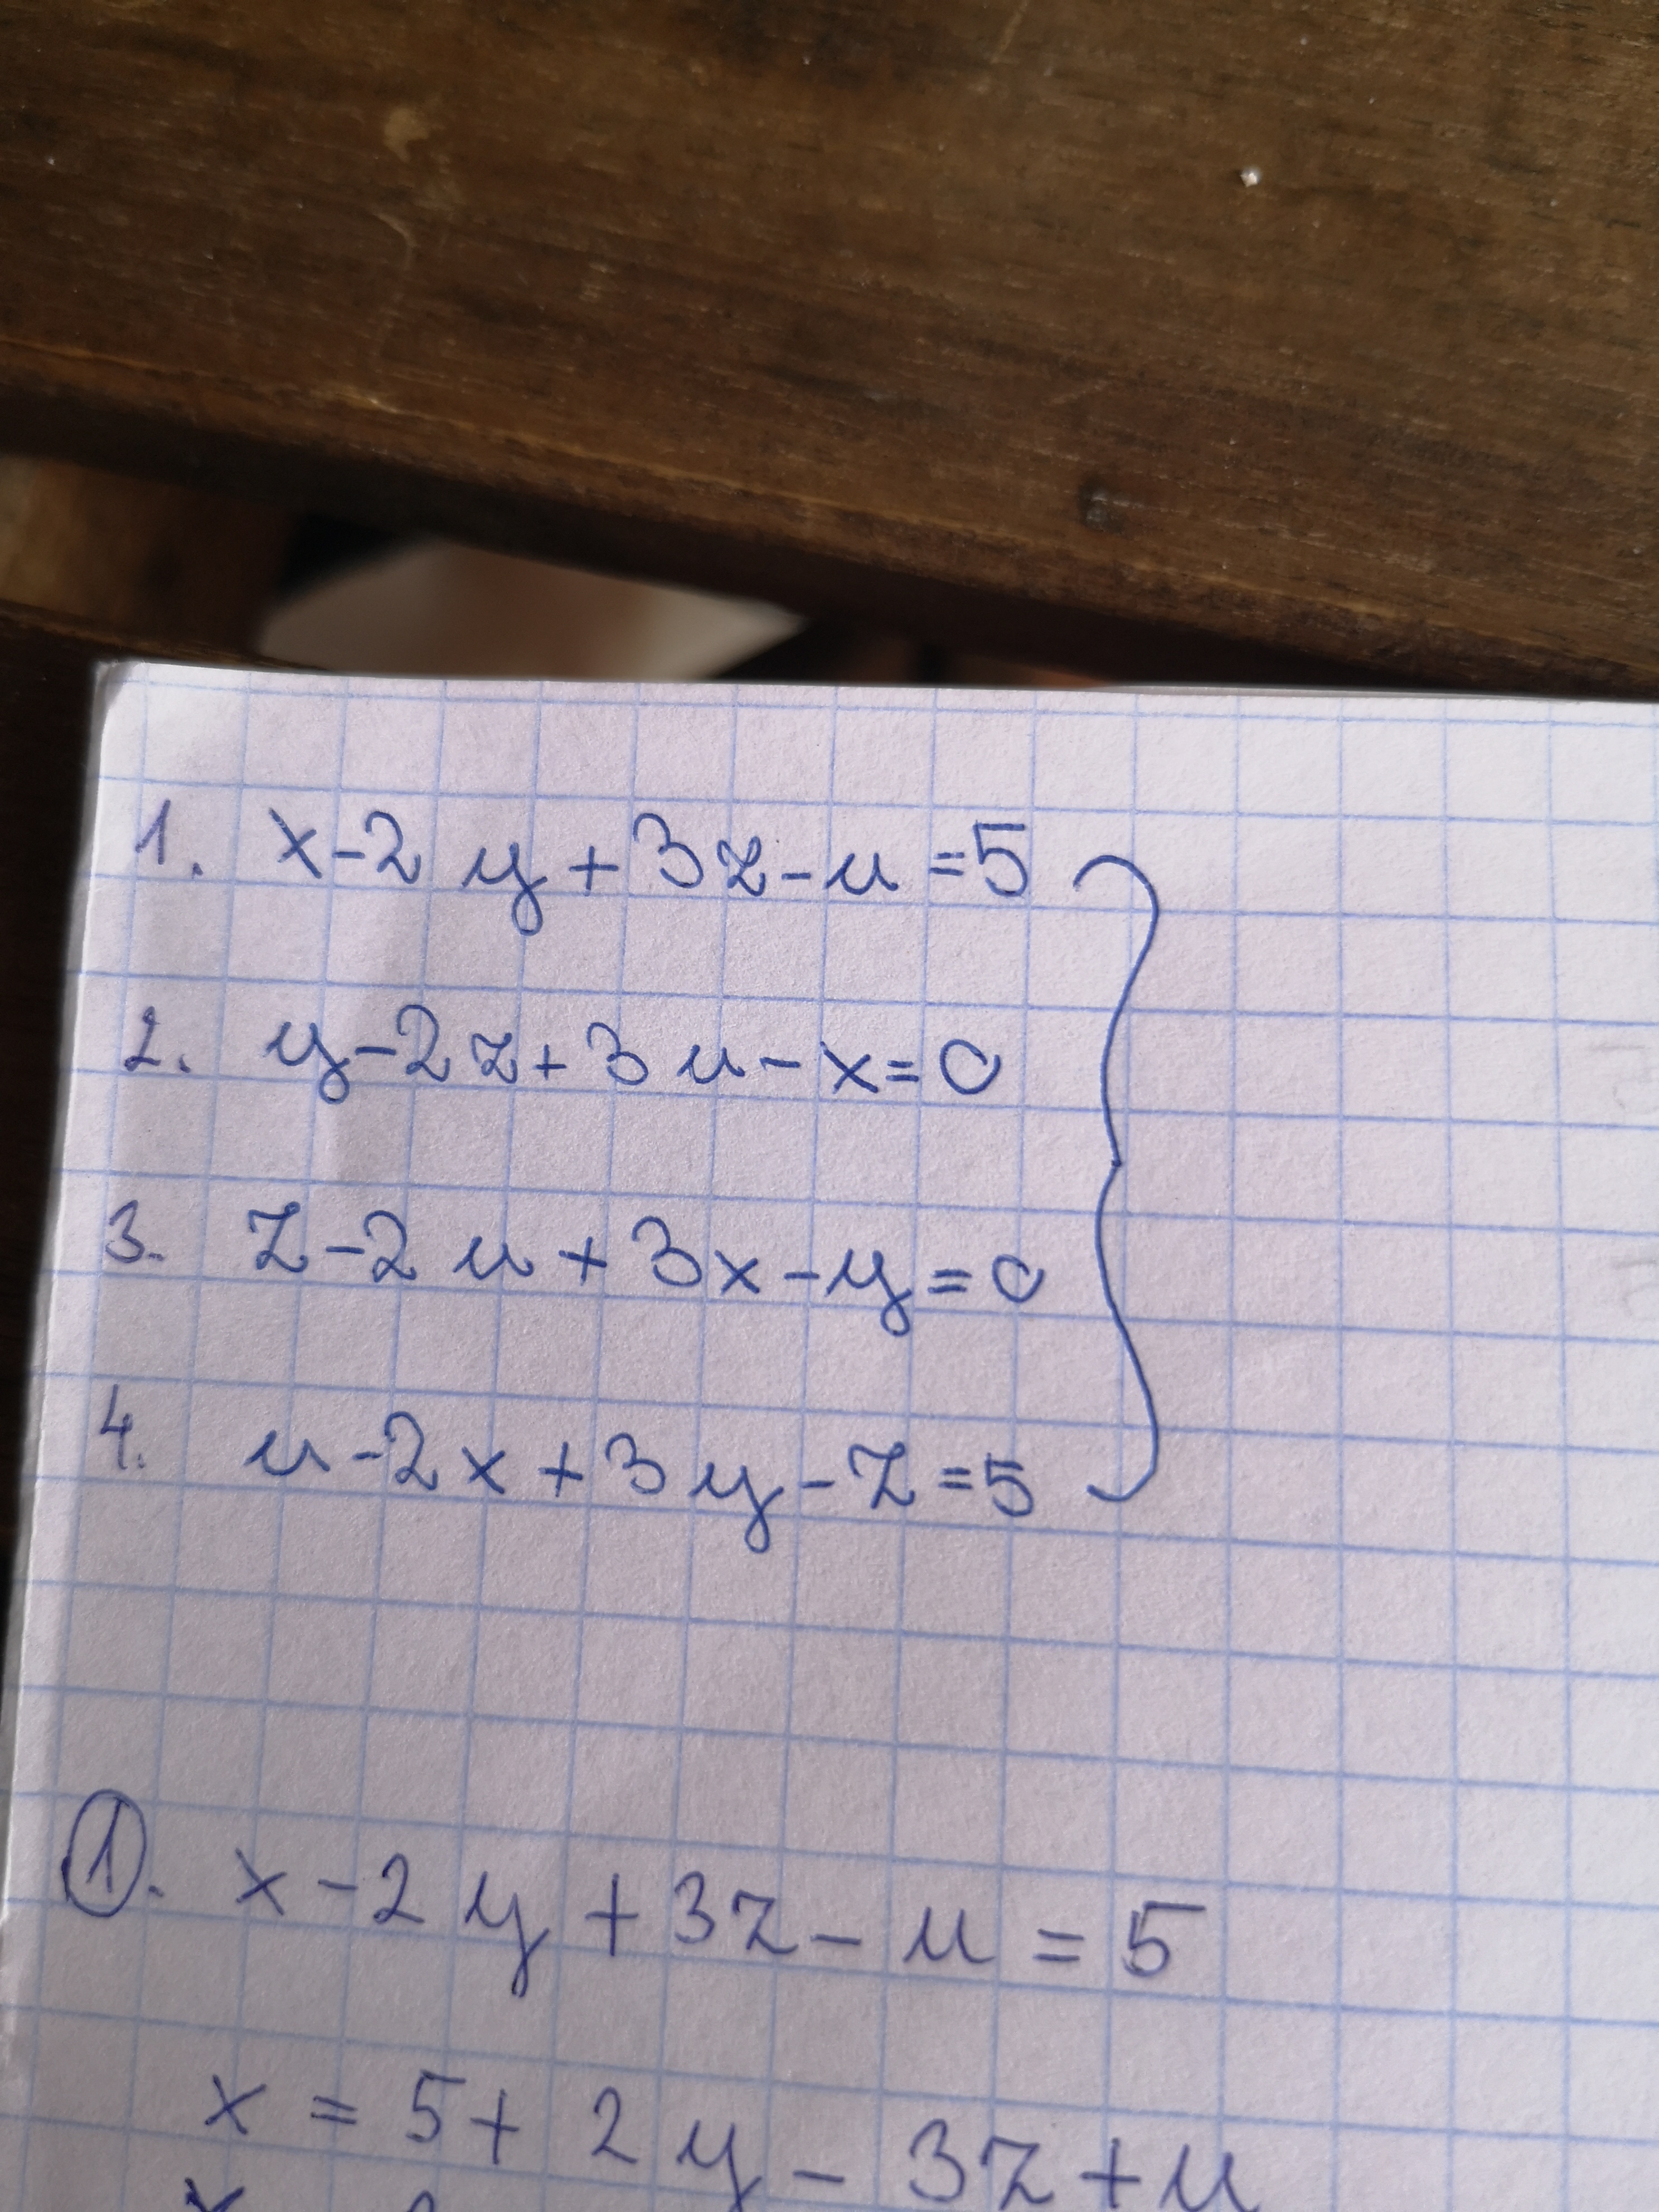 1. x-2y+3z-u=5
2. y-2z+3u-x=0
3. z-2u+3x-y=0
4. u-2x+3y-z=5
1. x-2y+3z-u=5
x=5+2y-3z+u